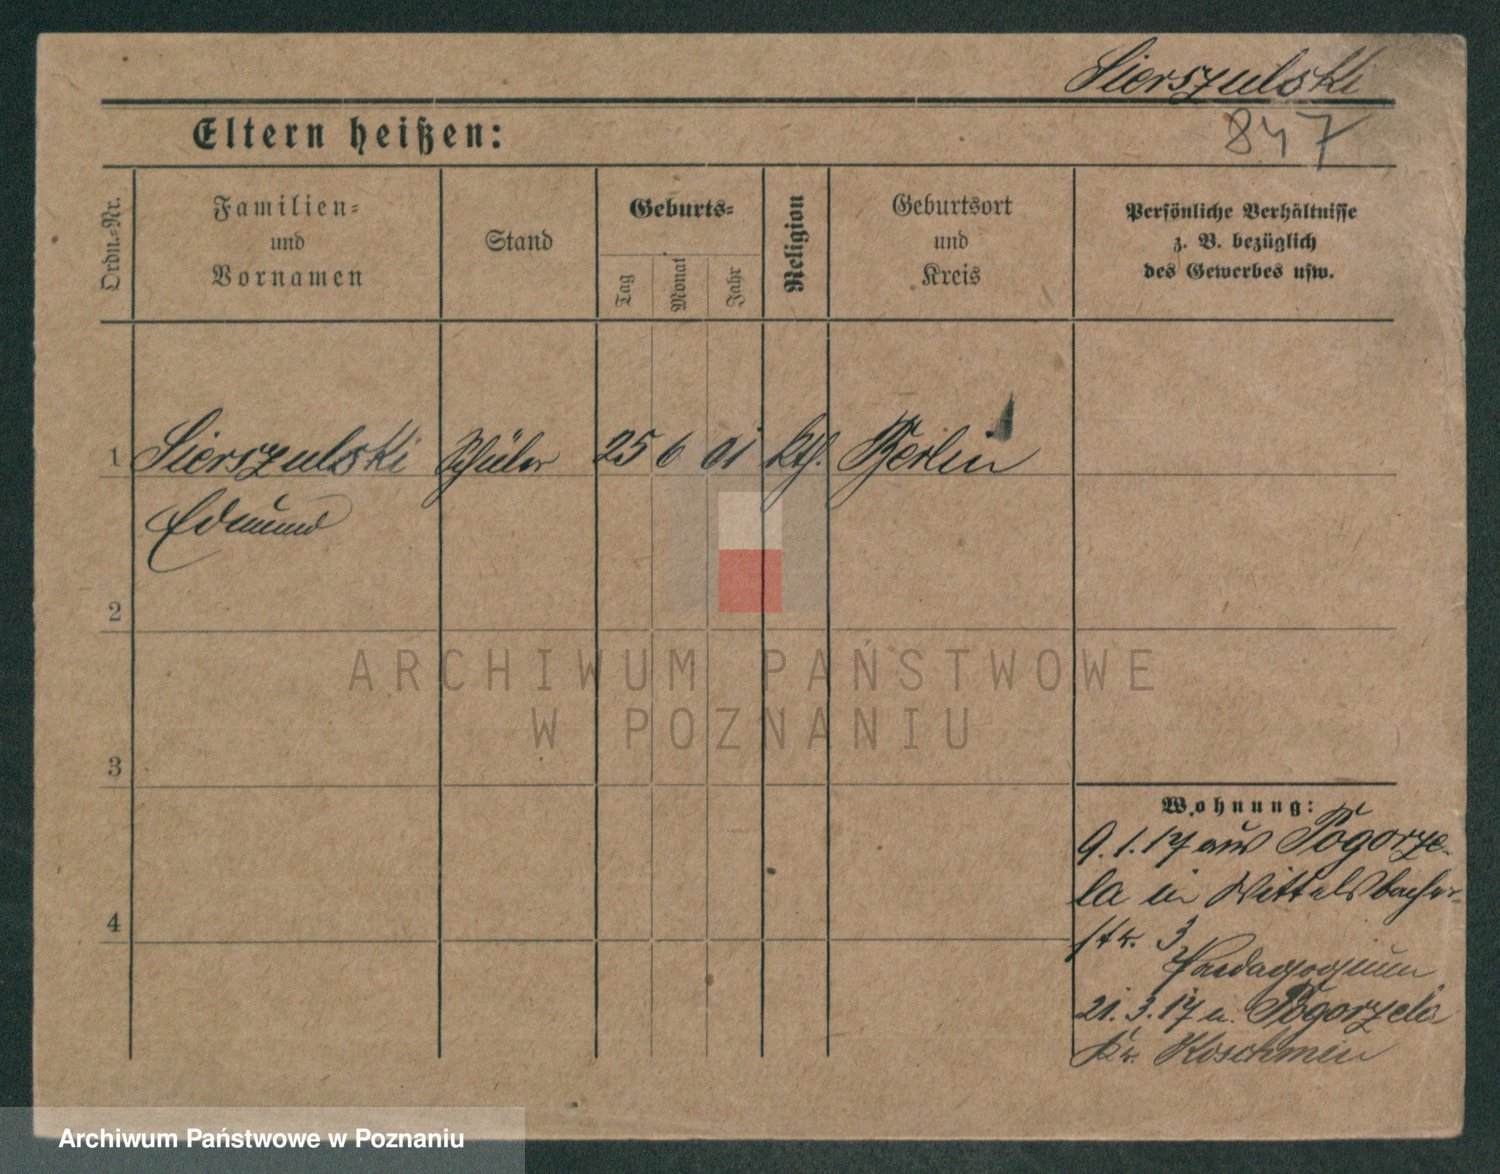 Sierszulski
Eltern heißen:
847
Ordn.-Nr.
Familien-
und
Vornamen
Stand
Geburts-
Tag
Monat
Jahr
Religion
Geburtsort
und
Kreis
Persönliche Verhältnisse
z. B. bezüglich
des Gewerbes usw.
1 Sierszulski Schüler 25 6 01 kth. Berlin
Edmund
2
3
4
Wohnung:
9.1.17 aus Pogorze-
la in Wittelsbacher-
str. 3
Paedagogium
21.3.17 n. Pogorzela
Kr. Koschmin
ARCHIWUM PAŃSTWOWE
W POZNANIU
Archiwum Państwowe w Poznaniu